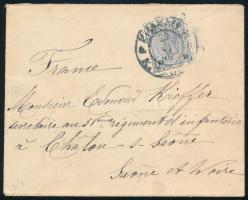 France
Monsieur Edouard Kieffer
secretaire au 5ième régiment d'infanterie
à Châlon-s-Saône
Saône et Loire